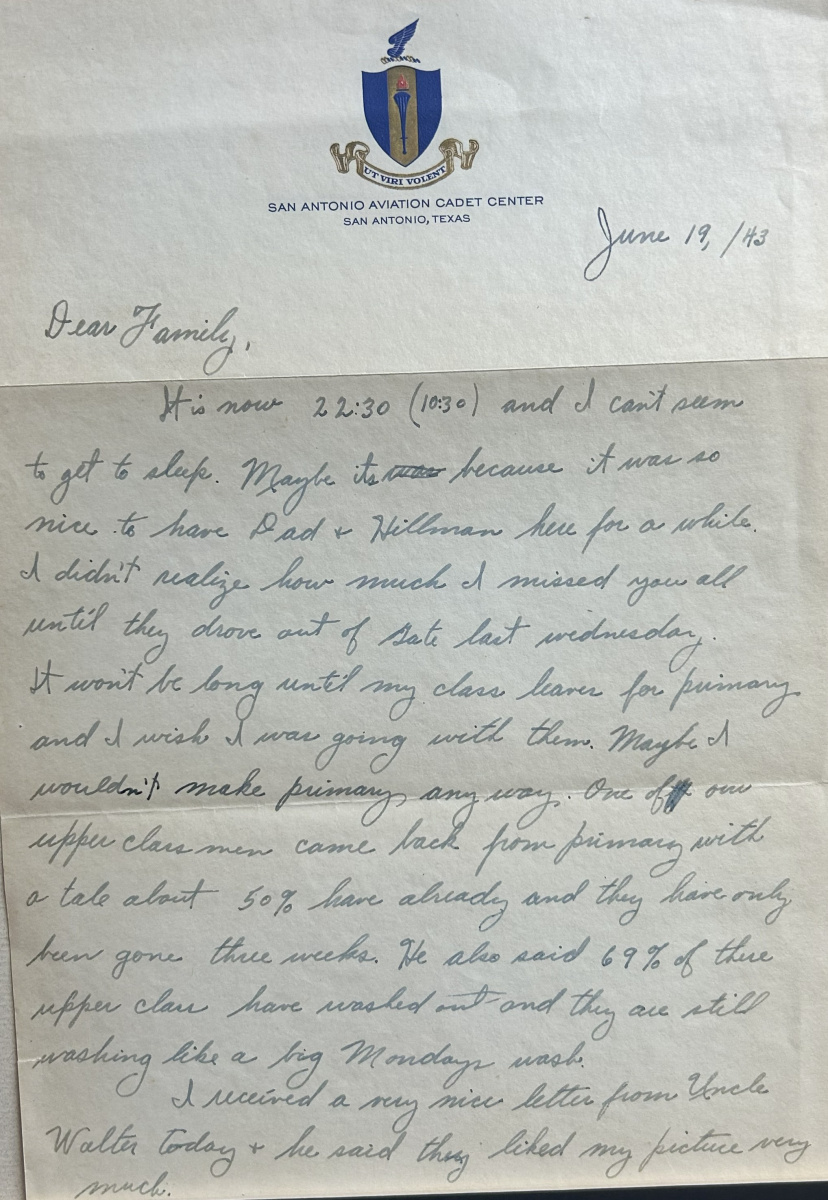 UT VIRI VOLENT
SAN ANTONIO AVIATION CADET CENTER
SAN ANTONIO, TEXAS
June 19, /43
Dear Family,
It is now 22:30 (10:30) and I can't seem
to get to sleep. Maybe its was because it was so
nice to have Dad & Hillman here for a while.
I didn't realize how much I missed you all
until they drove out of gate last wednesday.
It won't be long until my class leaves for primary
and I wish I was going with them. Maybe I
wouldn't make primary any way. One of our
upper class men came back from primary with
a tale about 50% have already and they have only
been gone three weeks. He also said 69% of there
upper class have washed out and they are still
washing like a big Mondays wash.
I received a very nice letter from Uncle
Walter today & he said they liked my picture very
much.